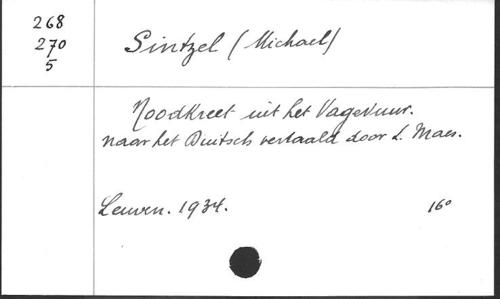 268
270
5
Sintzel (Michael)
Noodkreet uit het Vagevuur.
naar het Duitsch vertaald door L. Maes.
Leuven. 1934. 16º